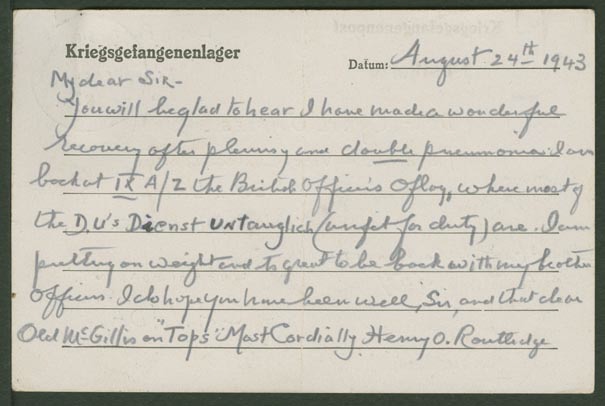 Kriegsgefangenenpost
Kriegsgefangenenlager Datum: August 24th 1943
My dear Sir -
You will be glad to hear I have made a wonderful
recovery after pleurisy and double pneumonia. I am
back at IX A/Z the British Officers Oflag, where most of
the D.U's Dienst untauglich (unfit for duty) are. I am
putting on weight and its great to be back with my brother
Officers. I do hope you have been well, Sir, and that dear
Old McGill is on "Tops" Most Cordially Henry O. Routledge